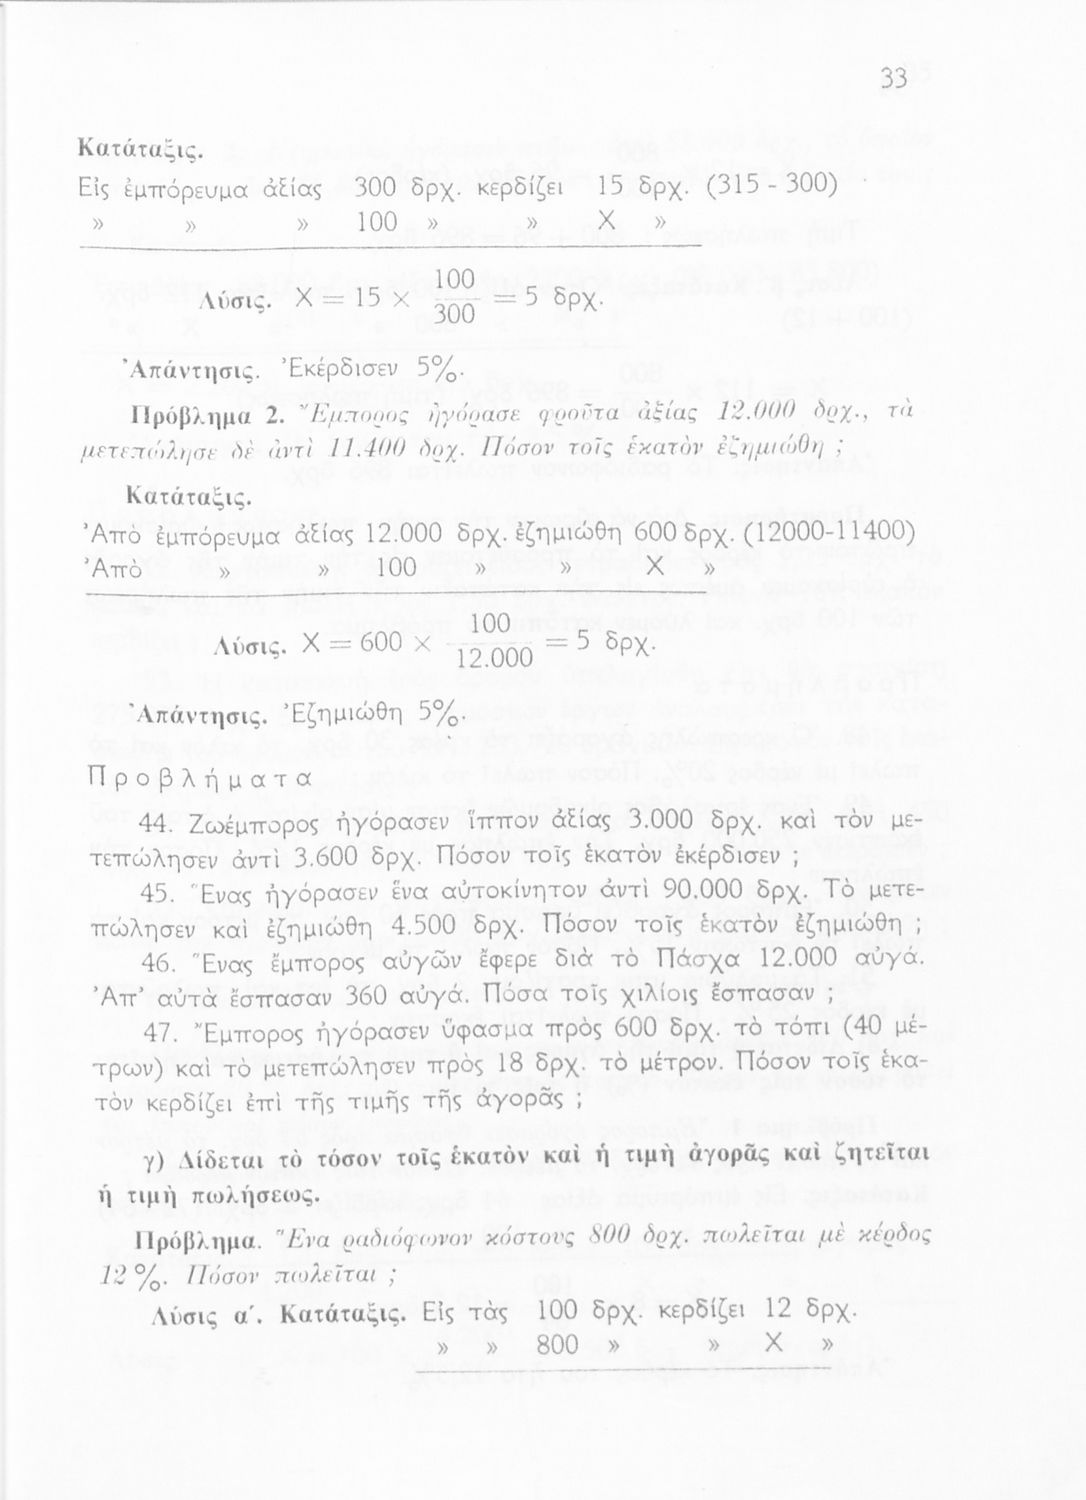 33
Κατάταξις.
Εἰς ἐμπόρευμα ἀξίας 300 δρχ. κερδίζει 15 δρχ. (315 - 300)
» » » 100 » » Χ »
Λύσις. Χ = 15 × 100/300 = 5 δρχ.
Ἀπάντησις. Ἐκέρδισεν 5%.
Πρόβλημα 2. Ἔμπορος ἠγόρασε φροῦτα ἀξίας 12.000 δρχ., τὰ
μετεπώλησε δὲ ἀντὶ 11.400 δρχ. Πόσον τοῖς ἑκατὸν ἐζημιώθη ;
Κατάταξις.
Ἀπὸ ἐμπόρευμα ἀξίας 12.000 δρχ. ἐζημιώθη 600 δρχ. (12000-11400)
Ἀπὸ » » 100 » » Χ »
Λύσις. Χ = 600 × 100/12.000 = 5 δρχ.
Ἀπάντησις. Ἐζημιώθη 5%.
Προβλήματα
44. Ζωέμπορος ἠγόρασεν ἵππον ἀξίας 3.000 δρχ. καὶ τὸν με-
τεπώλησεν ἀντὶ 3.600 δρχ. Πόσον τοῖς ἑκατὸν ἐκέρδισεν ;
45. Ἕνας ἠγόρασεν ἕνα αὐτοκίνητον ἀντὶ 90.000 δρχ. Τὸ μετε-
πώλησεν καὶ ἐζημιώθη 4.500 δρχ. Πόσον τοῖς ἑκατὸν ἐζημιώθη ;
46. Ἕνας ἔμπορος αὐγῶν ἔφερε διὰ τὸ Πάσχα 12.000 αὐγά.
Ἀπ' αὐτὰ ἔσπασαν 360 αὐγά. Πόσα τοῖς χιλίοις ἔσπασαν ;
47. Ἔμπορος ἠγόρασεν ὕφασμα πρὸς 600 δρχ. τὸ τόπι (40 μέ-
τρων) καὶ τὸ μετεπώλησεν πρὸς 18 δρχ. τὸ μέτρον. Πόσον τοῖς ἑκα-
τὸν κερδίζει ἐπὶ τῆς τιμῆς τῆς ἀγορᾶς ;
γ) Δίδεται τὸ τόσον τοῖς ἑκατὸν καὶ ἡ τιμὴ ἀγορᾶς καὶ ζητεῖται
ἡ τιμὴ πωλήσεως.
Πρόβλημα. Ἕνα ραδιόφωνον κόστους 800 δρχ. πωλεῖται μὲ κέρδος
12%. Πόσον πωλεῖται ;
Λύσις α'. Κατάταξις. Εἰς τὰς 100 δρχ. κερδίζει 12 δρχ.
» » 800 » » Χ »